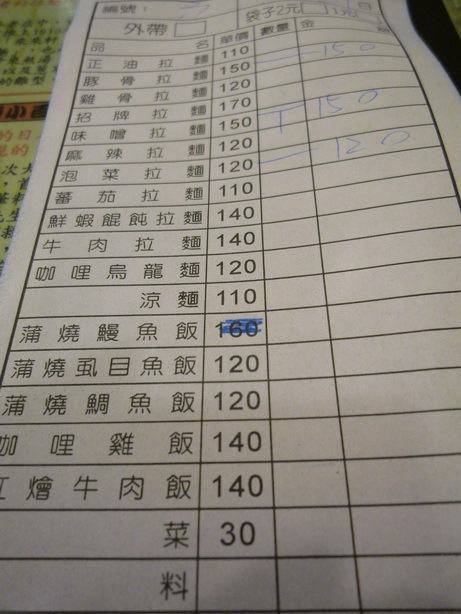 編號：
外帶 袋子2元
品名 單價 數量 金
正油拉麵 110
豚骨拉麵 150 一 150
雞骨拉麵 120
招牌拉麵 170
味噌拉麵 150 150
麻辣拉麵 120
泡菜拉麵 120 一 120
蕃茄拉麵 110
鮮蝦餛飩拉麵 140
牛肉拉麵 140
咖哩烏龍麵 120
涼麵 110
蒲燒鰻魚飯 160
蒲燒虱目魚飯 120
蒲燒鯛魚飯 120
咖哩雞飯 140
紅燴牛肉飯 140
菜 30
料